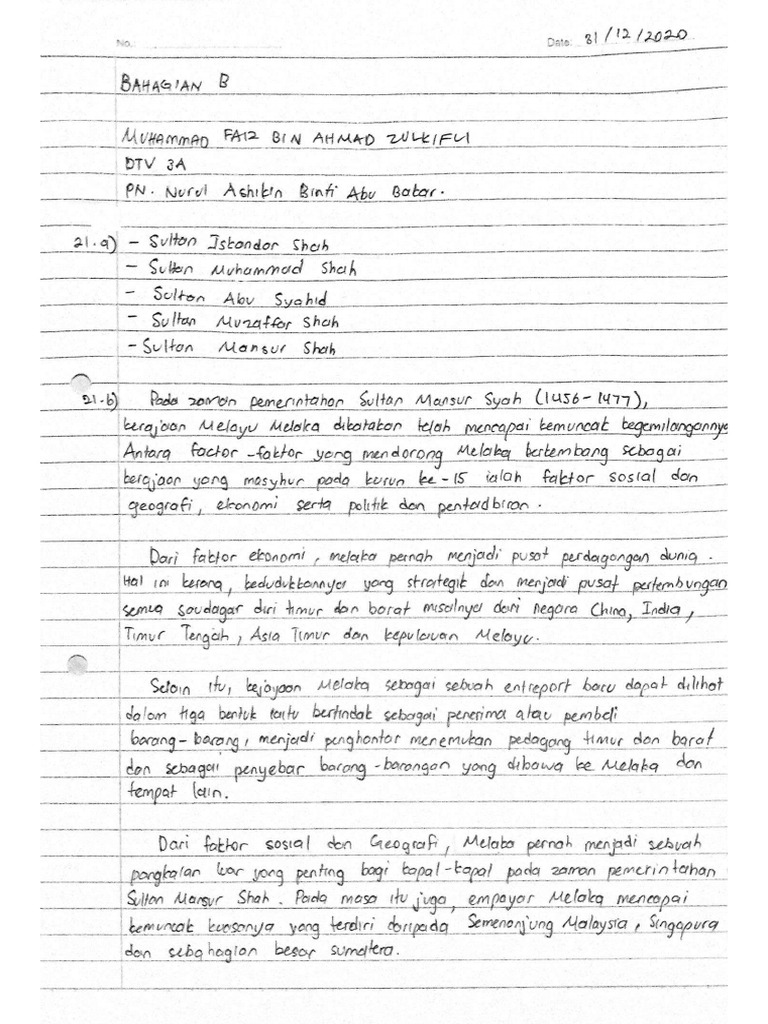 No.: Date: 31/12/2020
BAHAGIAN B
MUHAMMAD FAIZ BIN AHMAD ZULKIFLI
DTV 3A
PN. Nurul Ashikin Binti Abu Bakar.
21.a) - Sultan Iskandar Shah
- Sultan Muhammad Shah
- Sultan Abu Syahid
- Sultan Muzaffar Shah
- Sultan Mansur Shah
21.b) Pada zaman pemerintahan Sultan Mansur Syah (1456-1477),
kerajaan Melayu Melaka dikatakan telah mencapai kemuncak kegemilangannya
Antara factor-faktor yang mendorong Melaka berkembang sebagai
kerajaan yang masyhur pada kurun ke-15 ialah faktor sosial dan
geografi, ekonomi serta politik dan pentadbiran.
Dari faktor ekonomi, melaka pernah menjadi pusat perdagangan dunia.
Hal ini kerana, kedudukkannya yang strategik dan menjadi pusat pertembungan
semua saudagar diri timur dan barat misalnya dari negara China, India,
Timur Tengah, Asia Timur dan kepulauan Melayu.
Selain itu, kejayaan Melaka sebagai sebuah entreport baru dapat dilihat
dalam tiga bentuk iaitu bertindak sebagai penerima atau pembeli
barang-barang, menjadi penghantar menemukan pedagang timur dan barat
dan sebagai penyebar barang-barangan yang dibawa ke Melaka dan
tempat lain.
Dari faktor sosial dan Geografi, Melaka pernah menjadi sebuah
pangkalan luar yang penting bagi kapal-kapal pada zaman pemerintahan
Sultan Mansur Shah. Pada masa itu juga, empayar Melaka mencapai
kemuncak kuasanya yang terdiri daripada Semenanjung Malaysia, Singapura
dan sebahagian besar sumatera.